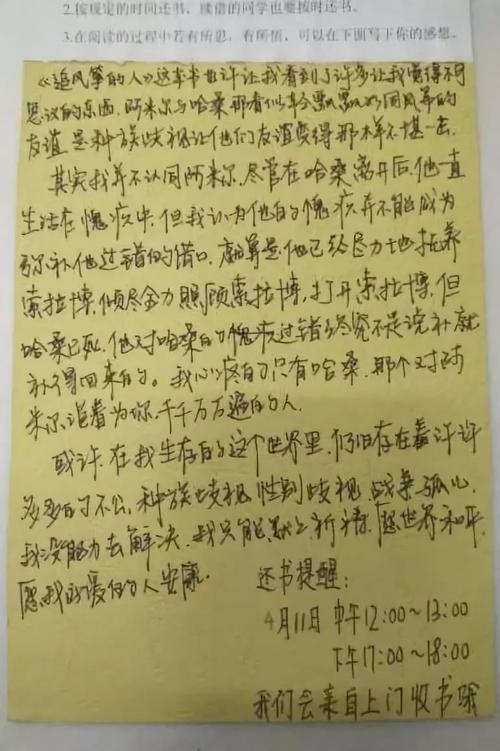 2.按规定的时间还书，续借的同学也要按时还书。
3.在阅读的过程中若有所思，有所悟，可以在下面写下你的感想。
《追风筝的人》这本书也许让我看到了许多让我觉得不可
思议的东西，阿米尔与哈桑那看似年分飘飘如同风筝的
友谊，是种族歧视让他们友谊变得那样不堪一击。
其实我并不认同阿米尔，尽管在哈桑离开后，他一直
生活在愧疚中，但我认为他的愧疚并不能成为
弥补他过错的借口，就算是他已经尽力地抚养
索拉博，倾尽全力照顾索拉博，打开索拉博，但
哈桑已死，他对哈桑的愧疚过错终究不是说补就
补得回来的。我心疼的只有哈桑，那个对阿
米尔追着为你，千千万万遍的人。
或许，在我生存的这个世界里，仍旧存在着许许
多多的不公，种族歧视，性别歧视，战争孤儿，
我没能力去解决，我只能献上祈祷，愿世界和平，
愿我所爱的人安康。
还书提醒：
4月11日 中午12:00～13:00
下午17:00～18:00
我们会亲自上门收书哦